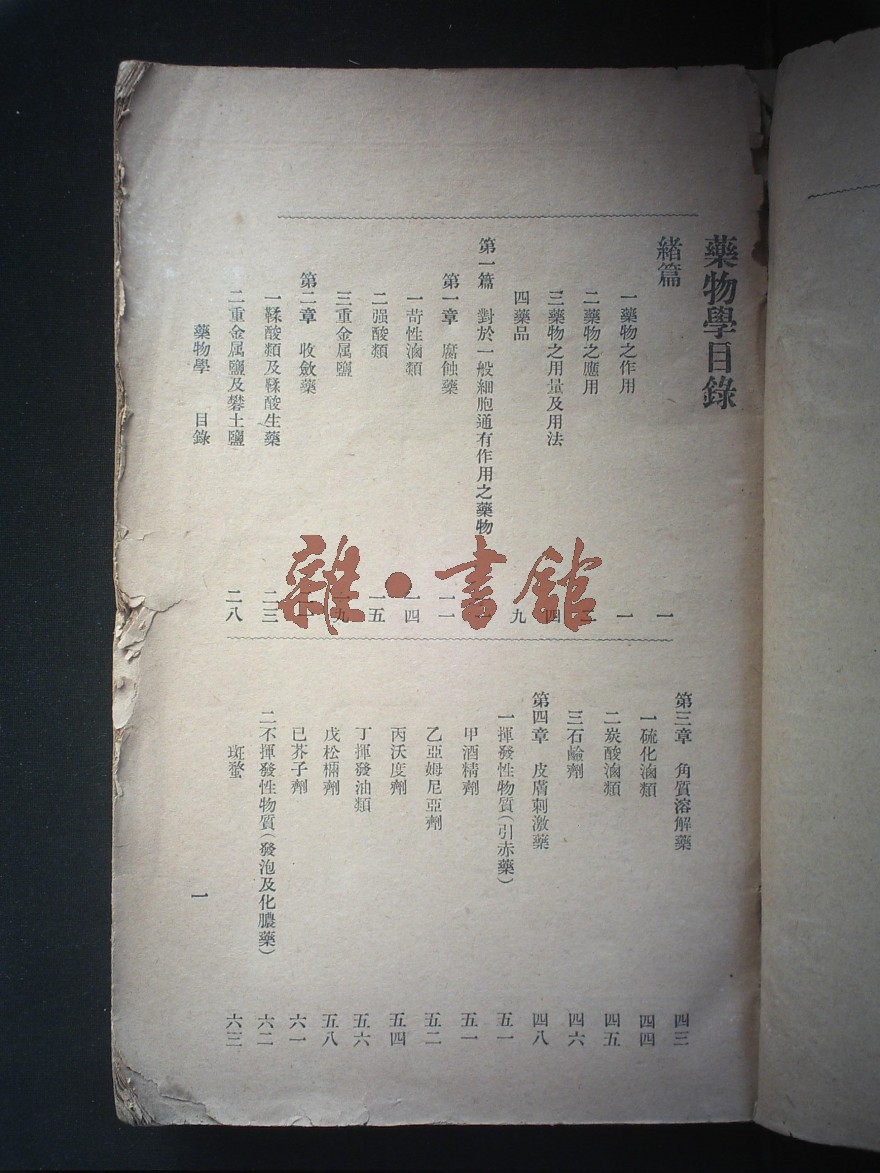 藥物學目錄
緒篇 一
一藥物之作用 一
二藥物之應用
三藥物之用量及用法 四
四藥品 九
第一篇 對於一般細胞通有作用之藥物
第一章 腐蝕藥 一一
一苛性滷類 一四
二强酸類 一五
三重金属鹽 一九
第二章 收斂藥
一鞣酸類及鞣酸生藥 二三
二重金属鹽及礬土鹽 二八
第三章 角質溶解藥 四三
一硫化滷類 四四
二炭酸滷類 四五
三石鹼劑 四六
第四章 皮膚刺激藥 四八
一揮發性物質(引赤藥) 五一
甲酒精劑 五一
乙亞姆尼亞劑 五二
丙沃度劑 五四
丁揮發油類 五六
戊松櫛劑 五八
己芥子劑 六一
二不揮發性物質(發泡及化膿藥) 六二
斑蝥 六三
藥物學 目錄 一
雜·書館